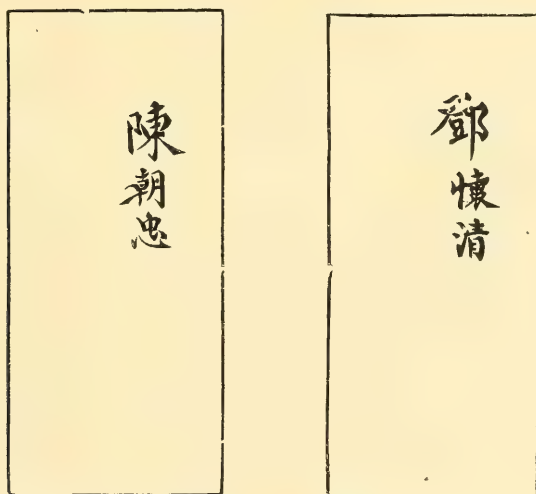 鄧懷清
陳朝忠